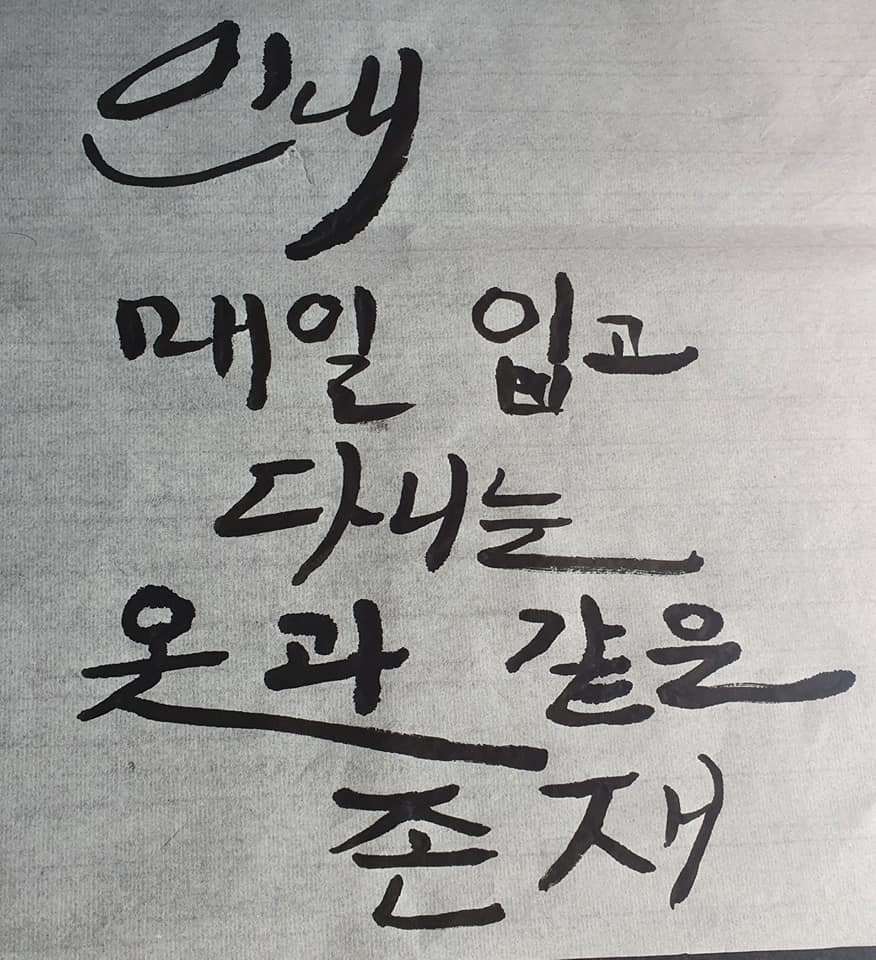 인내
매일 입고
다니는
옷과 같은
존재